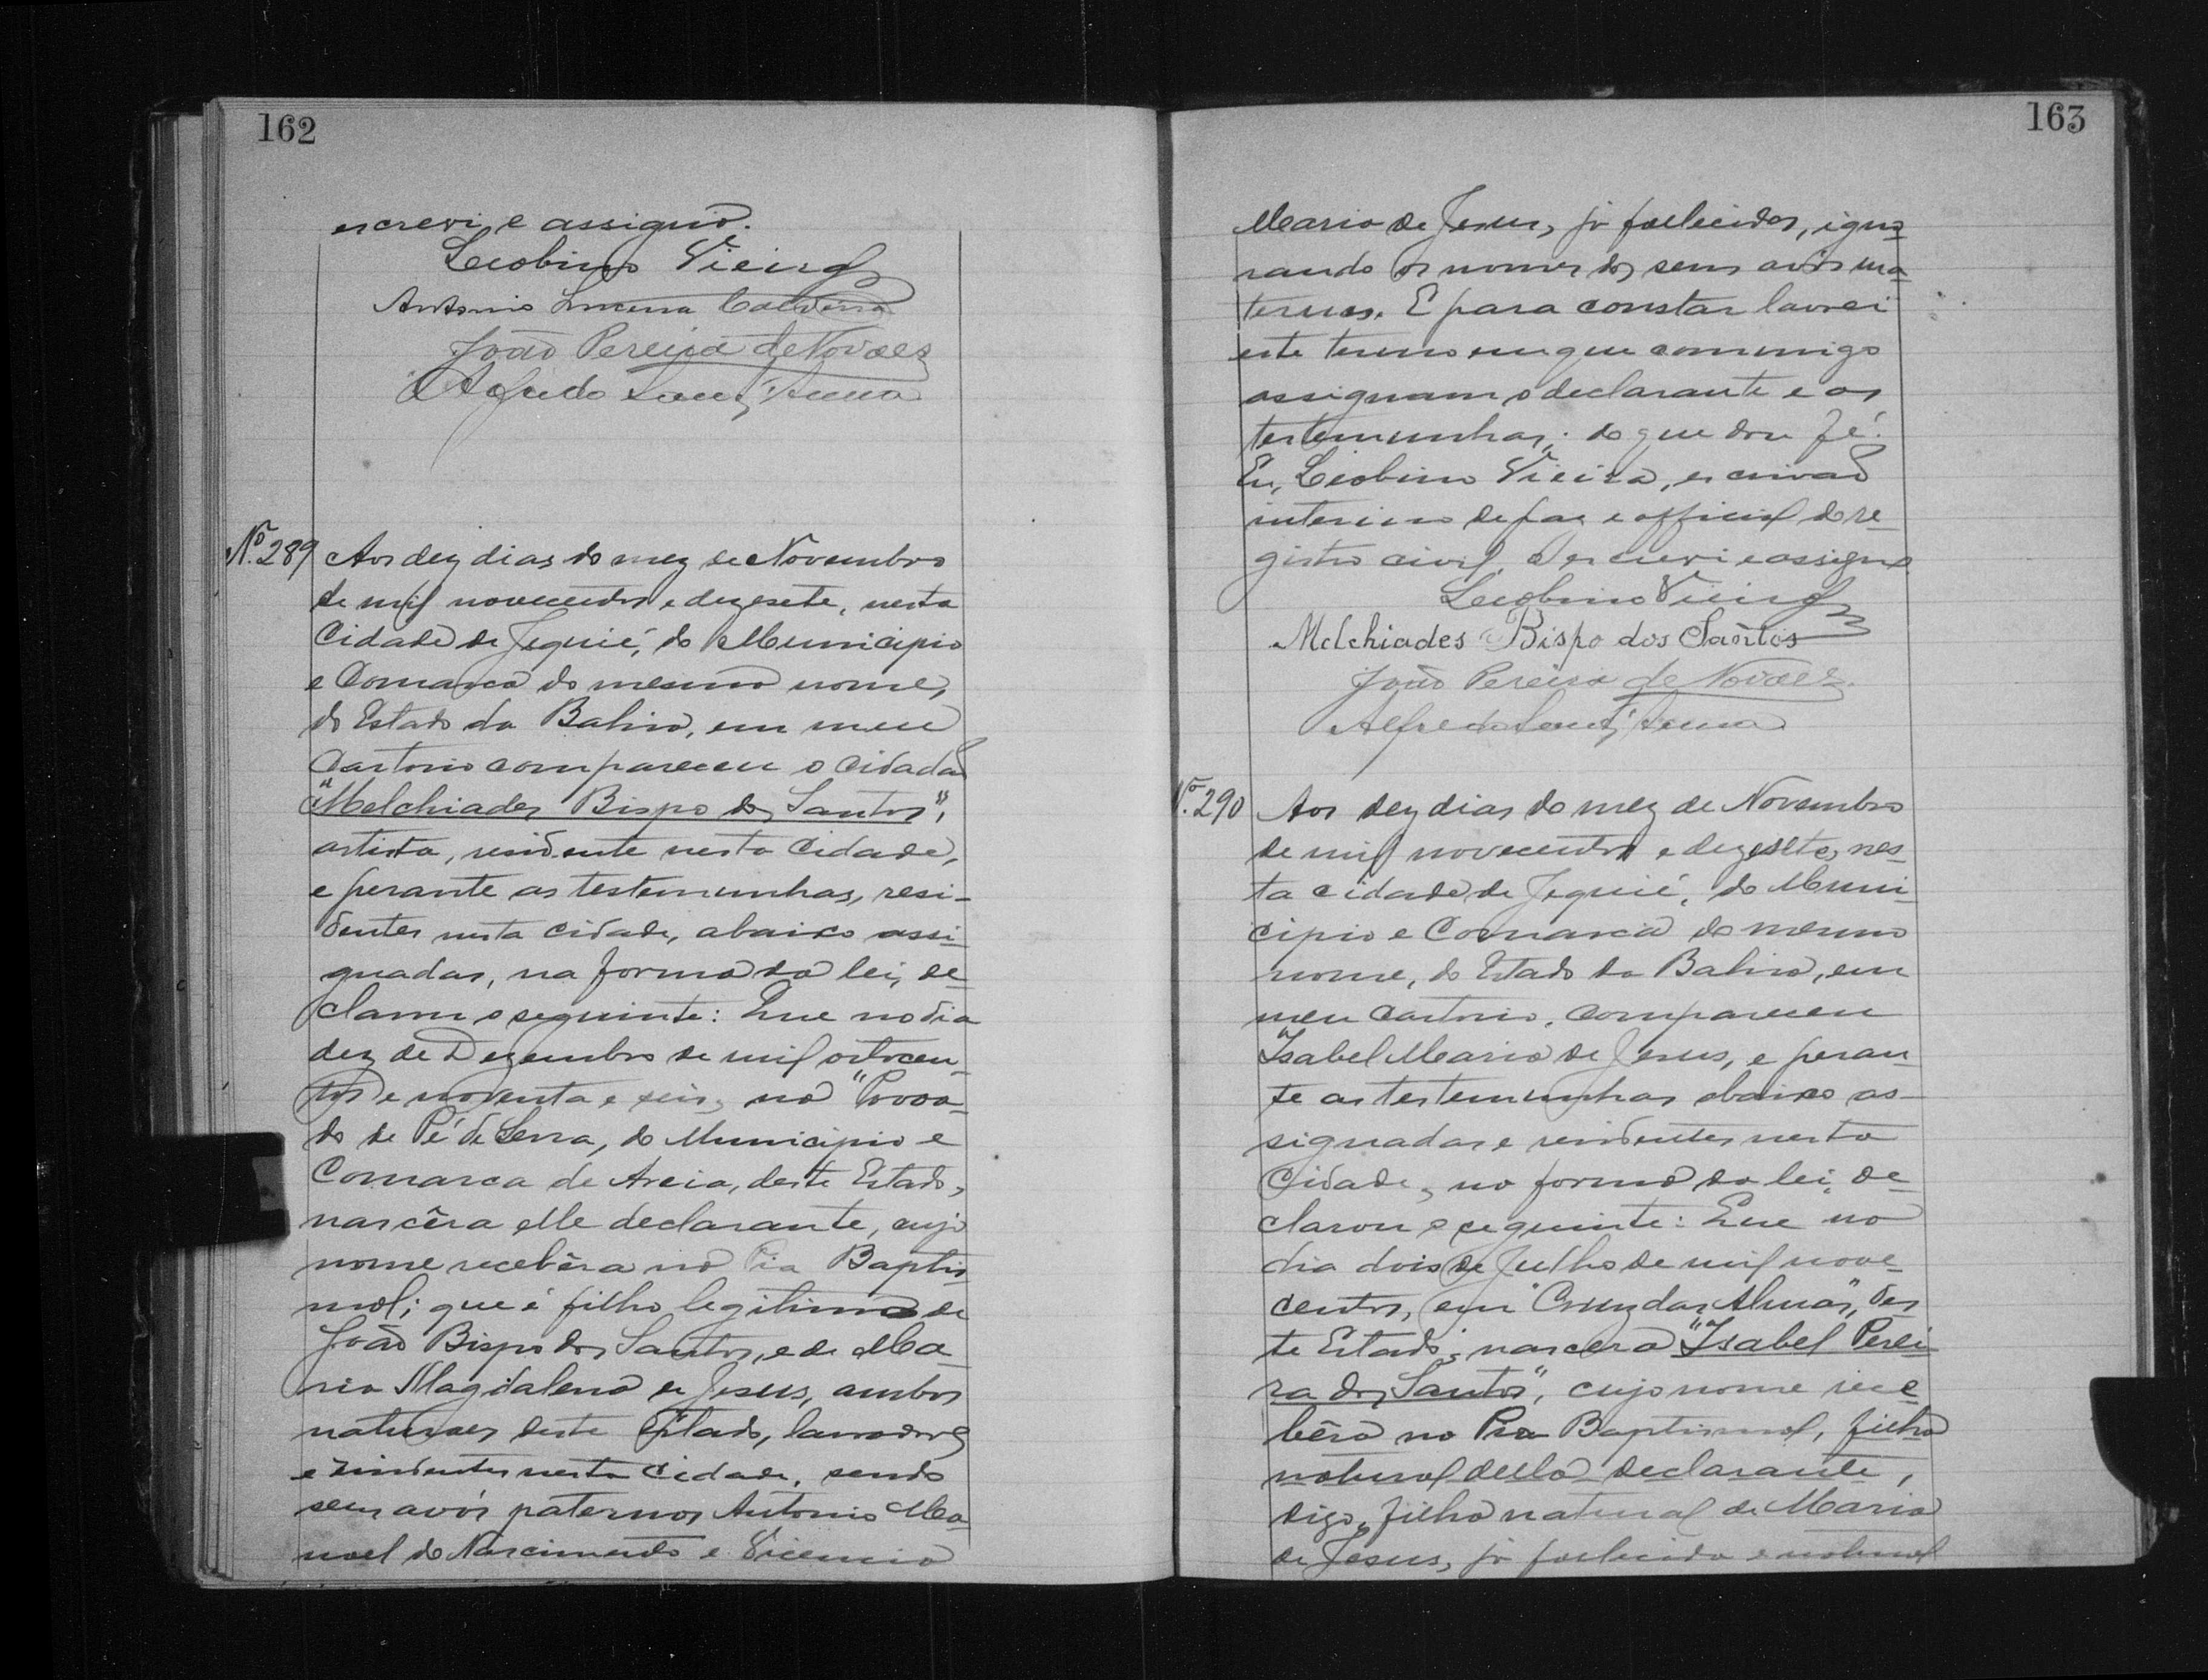 162
escrevi e assigno.
Leobino Vieira
Antonio Lucena Caldeira
João Pereira de Novaes
Alfredo Sant'Anna
Nº. 289 Aos dez dias do mez de Novembro
de mil novecentos e dezesete, nesta
Cidade de Jequié, do Municipio
e Comarca do mesmo nome,
do Estado da Bahia, em meu
Cartorio compareceu o cidadão
"Melchiades Bispo dos Santos",
artista, residente nesta Cidade,
e perante as testemunhas, resi-
dentes nesta cidade, abaixo assi-
gnadas, na forma da lei, de-
clarou o seguinte: Que no dia
dez de Dezembro de mil oitocen-
tos e noventa e seis, no "Povoa-
do de Pé de Serra, do Municipio e
Comarca de Areia, deste Estado,
nascêra elle declarante, cujo
nome recebêra na Pia Baptis-
mal; que é filho legitimo de
João Bispo dos Santos, e de Ma-
ria Magdalena de Jesus, ambos
naturaes deste Estado, lavradores
e residentes nesta Cidade, sendo
seus avós paternos Antonio Ma-
noel do Nascimento e Vicencia
163
Maria de Jesus, já fallecidos, igno-
rando os nomes dos seus avós ma-
ternos. E para constar lavrei
este termo em que commigo
assignam o declarante e as
testemunhas; do que dou fé.
Eu, Leobino Vieira, escrivão
interino de paz e official do re-
gistro civil, o escrevi e assigno
Leobino Vieira
Melchiades Bispo dos Santos
João Pereira de Novaes.
Alfredo Sant'Anna
Nº. 290 Aos dez dias do mez de Novembro
de mil novecentos e dezesete, nes-
ta cidade de Jequié, do Muni-
cipio e Comarca do mesmo
nome, do Estado da Bahia, em
meu Cartorio, compareceu
"Isabel Maria de Jesus, e peran-
te as testemunhas abaixo as-
signadas e residentes nesta
Cidade, na forma da lei, de-
clarou o seguinte: Que no
dia dois de Julho de mil nove-
centos, em "Cruz das Almas", des-
te Estado, nascera "Isabel Perei-
ra dos Santos", cujo nome rece-
bêra na Pia Baptismal, filha
natural della declarante,
digo, filha natural de Maria
de Jesus, já fallecida e natural